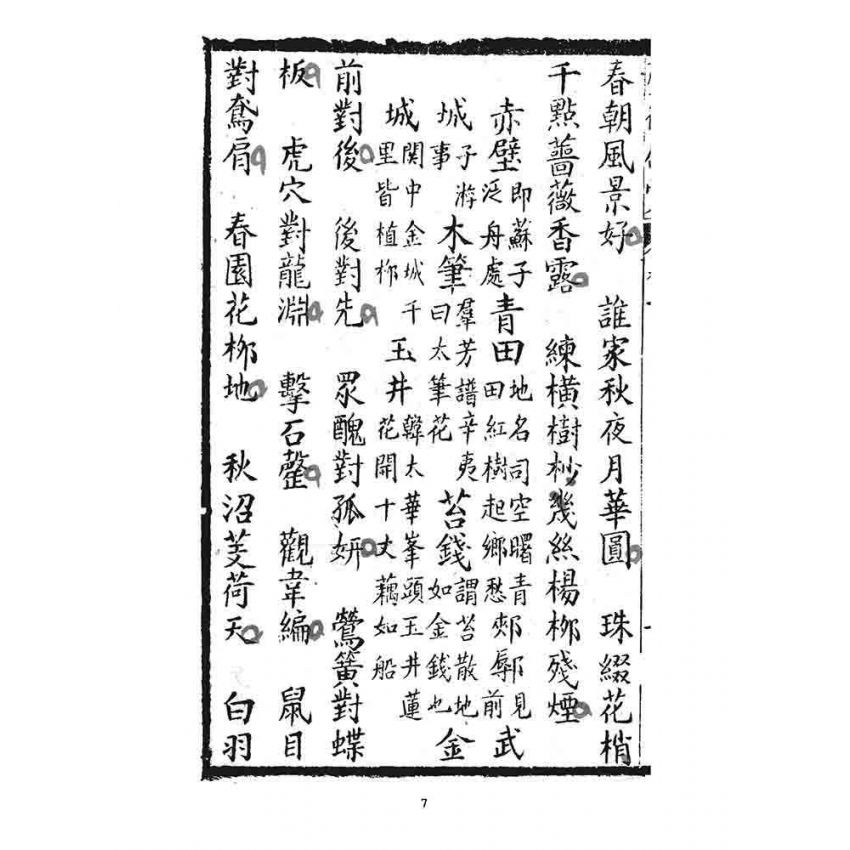 春朝風景好 誰家秋夜月華圓 珠綴花梢
千點薔薇香露 練橫樹杪幾絲楊柳殘煙
赤壁即蘇子泛舟處青田地名司空曙青田紅樹起鄉愁郟鄏見前武
城子游事木筆羣芳譜辛夷曰太筆花苔錢謂苔散地如金錢也金
城関中金城千里皆植柳玉井韓太華峯頭玉井蓮花開十丈藕如船
前對後 後對先 眾醜對孤妍 鶯簧對蝶
板 虎穴對龍淵 擊石罄 觀韋編 鼠目
對鳶肩 春園花柳地 秋沼芰荷天 白羽
7